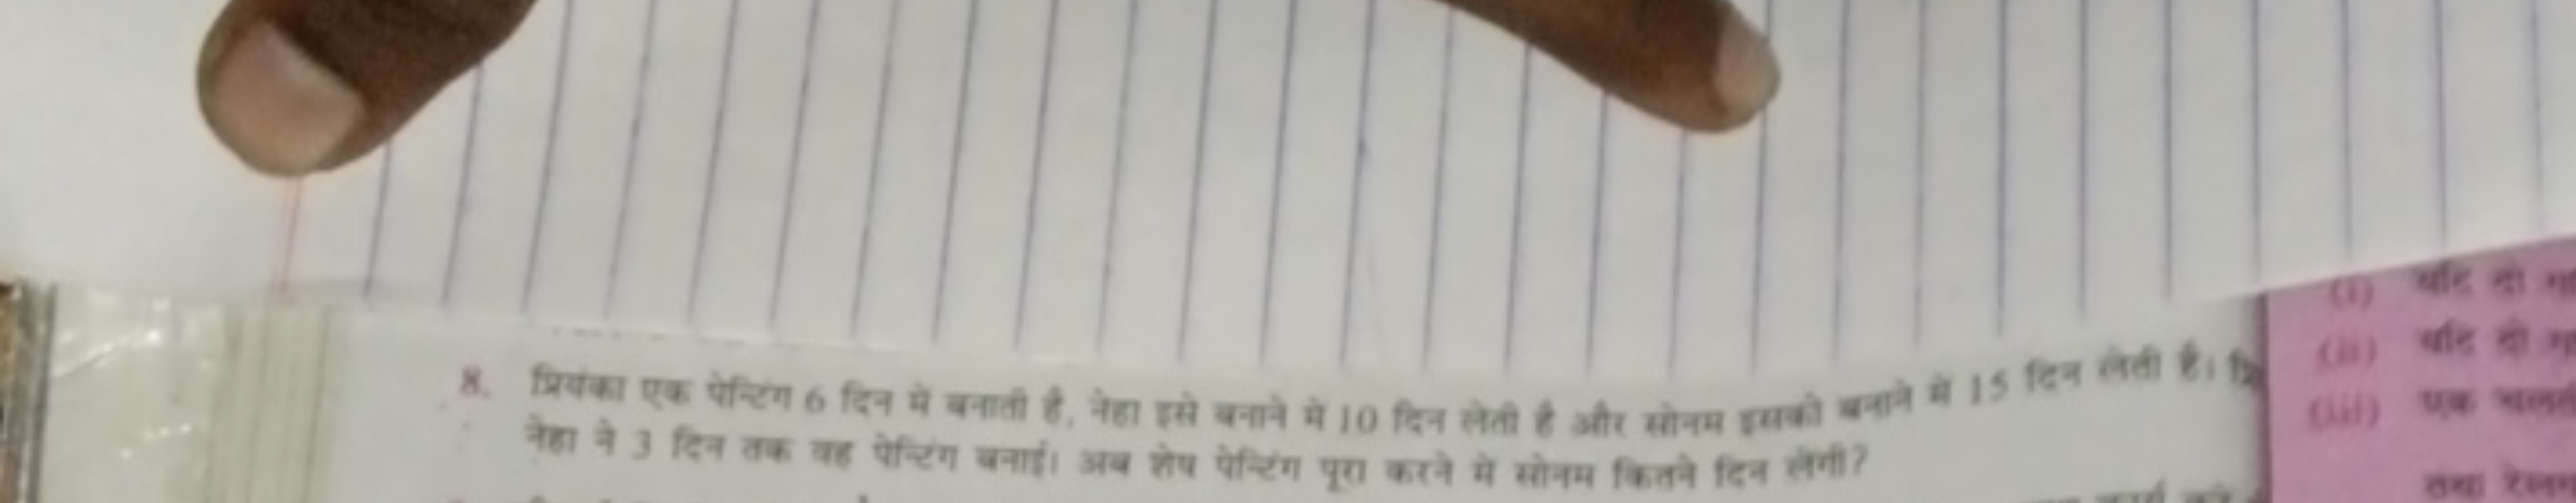 8. प्रियंका एक पेन्टिंग 6 दिन में बनाती है, नेहा इसे बनाने में 10 दिन लेती है और सोनम इसको बनाने में 15 दिन लेती है।
नेहा ने 3 दिन तक वह पेन्टिंग बनाई। अब शेष पेन्टिंग पूरा करने में सोनम कितने दिन लेगी?
(i) यदि दो
(ii) यदि दो
(iii) एक
तथा